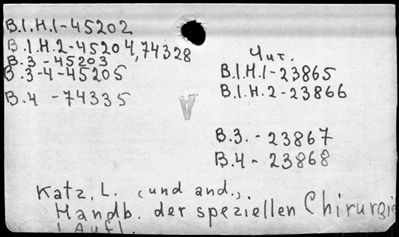 B.I.H.I-45202
B.I.H.2-45204,74328
B.3-45203
B.3-4-45205
B.4-74335
Чит.
B.I.H.I-23865
B.I.H.2-23866
B.3.-23867
B.4-23868
Katz, L. (und and.).
Handb. der speziellen Chirurgie
1 Aufl.